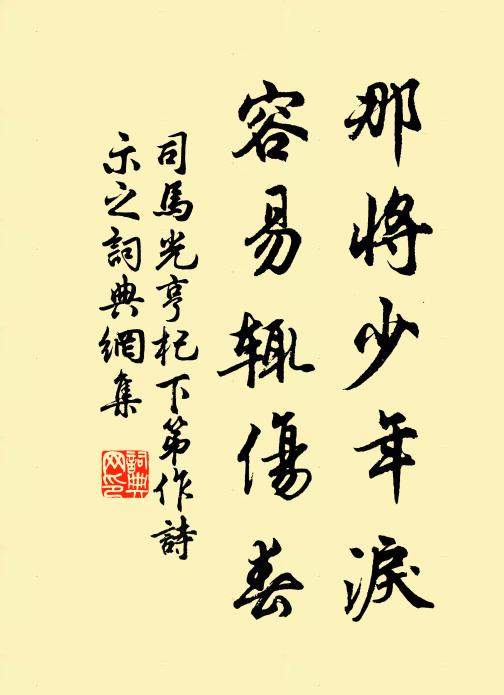 那将少年淚
容易辄傷春
司馬光亨杞下第作詩
示之詞典網集
詞典网印